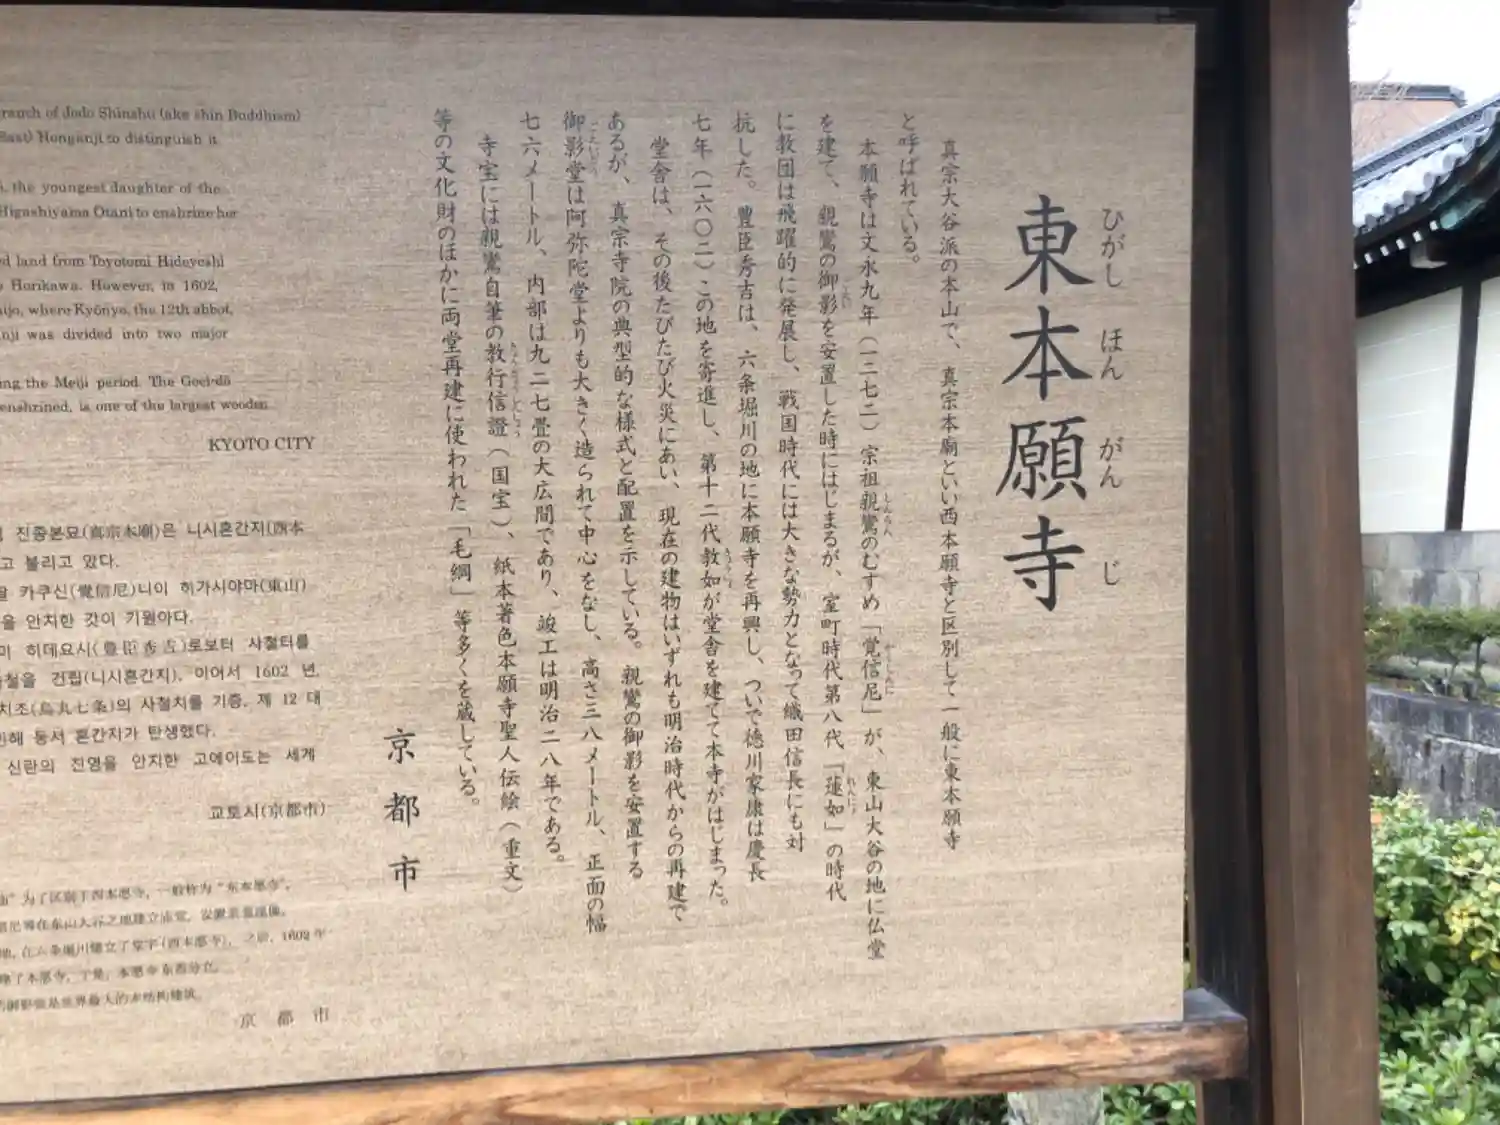 東本願寺
ひがし ほん がん じ
真宗大谷派の本山で、真宗本廟といい西本願寺と区別して一般に東本願寺
と呼ばれている。
本願寺は文永九年（一二七二）宗祖親鸞のむすめ「覚信尼」が、東山大谷の地に仏堂
を建て、親鸞の御影を安置した時にはじまるが、室町時代第八代「蓮如」の時代
に教団は飛躍的に発展し、戦国時代には大きな勢力となって織田信長にも対
抗した。豊臣秀吉は、六条堀川の地に本願寺を再興し、ついで徳川家康は慶長
七年（一六〇二）この地を寄進し、第十二代教如が堂舎を建てて本寺がはじまった。
堂舎は、その後たびたび火災にあい、現在の建物はいずれも明治時代からの再建で
あるが、真宗寺院の典型的な様式と配置を示している。親鸞の御影を安置する
御影堂は阿弥陀堂よりも大きく造られて中心をなし、高さ三八メートル、正面の幅
七六メートル、内部は九二七畳の大広間であり、竣工は明治二八年である。
寺宝には親鸞自筆の教行信證（国宝）、紙本著色本願寺聖人伝絵（重文）
等の文化財のほかに両堂再建に使われた「毛綱」等多くを蔵している。
京都市
ranch of Jodo Shinshu (aka shin Buddhism)
East) Honganji to distinguish it
, the youngest daughter of the
Higashiyama Otani to enshrine her
ed land from Toyotomi Hideyoshi
Horikawa. However, in 1602,
ijo, where Kyōnyo, the 12th abbot,
nji was divided into two major
ing the Meiji period. The Goei-dō
enshrined, is one of the largest wooden
KYOTO CITY
진종본묘(真宗本廟)은 니시혼간지(西本
고 불리고 있다.
딸 카쿠신(覺信尼)니이 히가시야마(東山)
을 안치한 것이 기원이다.
미 히데요시(豊臣秀吉)로부터 사철터를
사철을 건립(니시혼간지), 이어서 1602 년,
치조(烏丸七条)의 사철치를 기증, 제 12 대
인해 동서 혼간지가 탄생했다.
신란의 진영을 안치한 고에이도는 세계
교토시(京都市)
为了区别于西本愿寺，一般称为“东本愿寺”。
信尼等在东山大谷之地建立庙堂，安置亲鸞
地，在六条堀川建立了堂宇（西本愿寺），之后，1602年
了本愿寺，于是，本愿寺东西分立。
的御影堂是世界最大的木结构建筑。
京都市